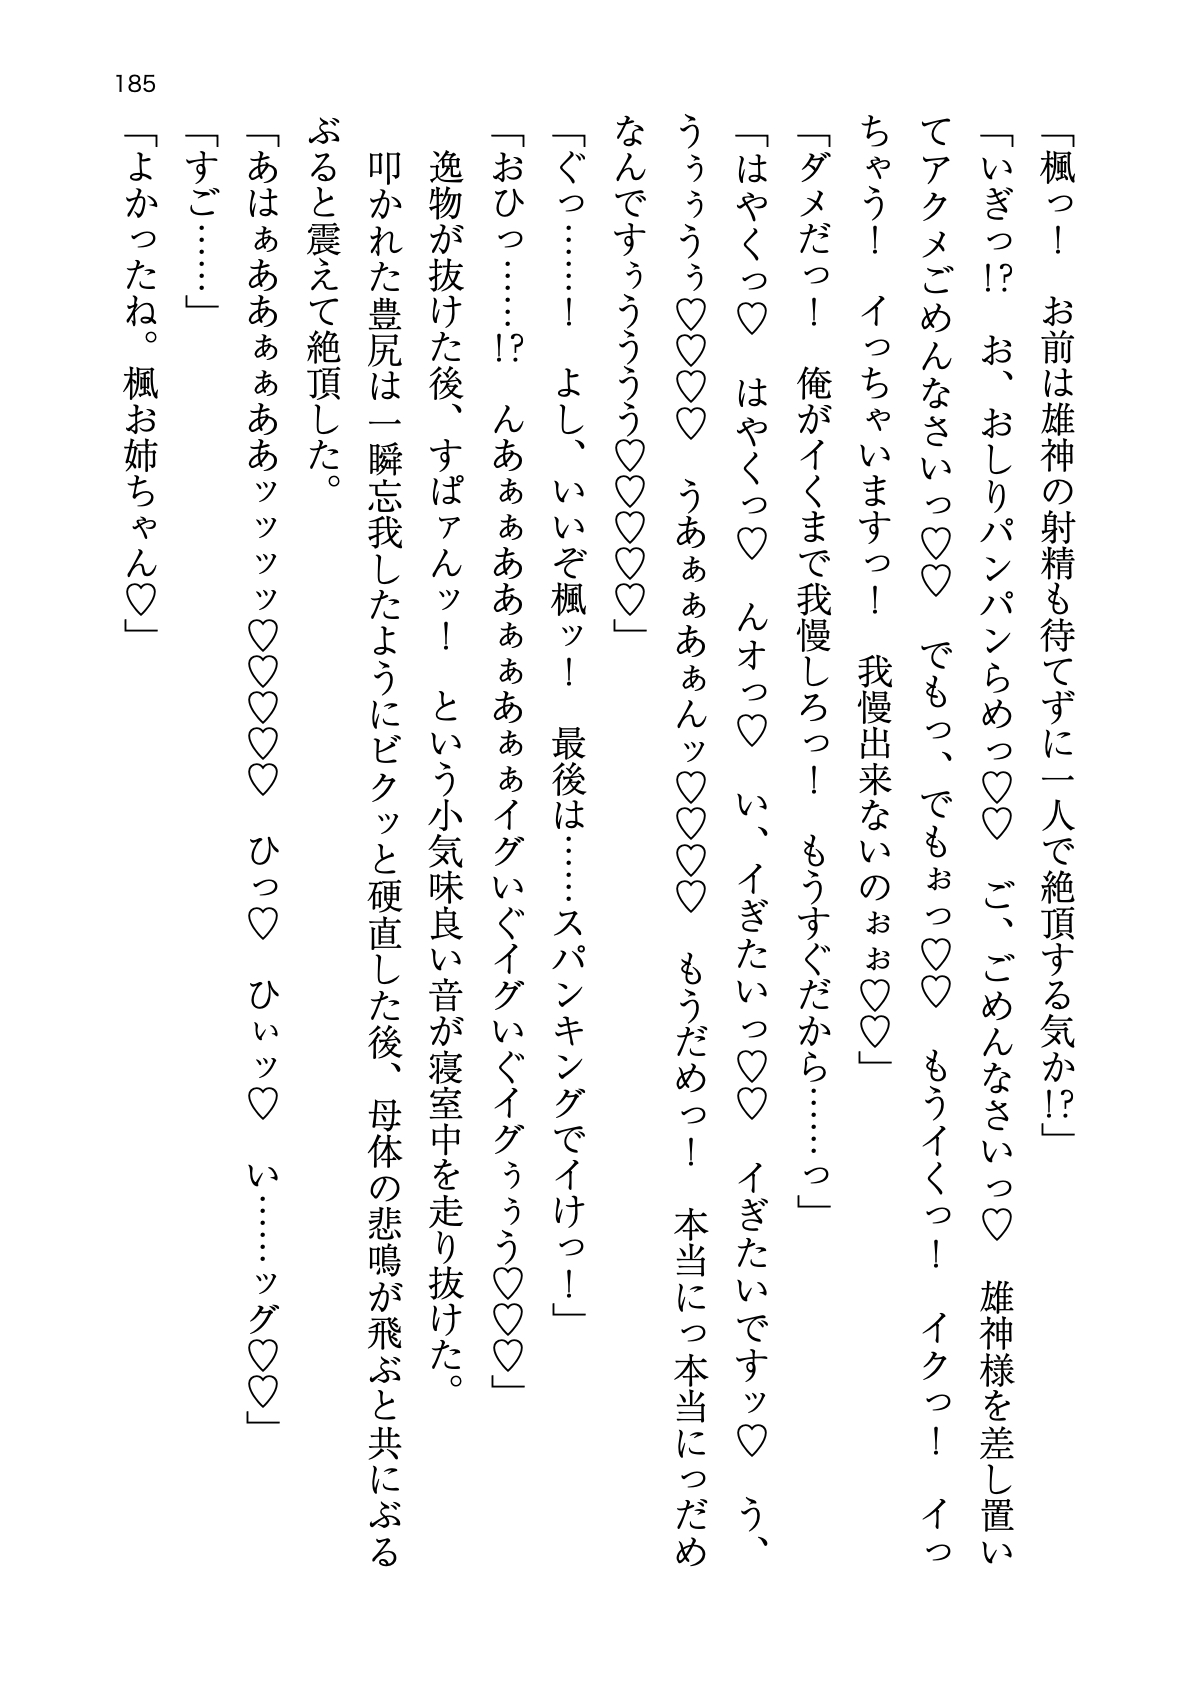 185
「楓っ！　お前は雄神の射精も待てずに一人で絶頂する気か!?」
「いぎっ!?　お、おしりパンパンらめっ♡♡　ご、ごめんなさいっ♡　雄神様を差し置い
てアクメごめんなさいっ♡♡　でもっ、でもぉっ♡♡　もうイくっ！　イクっ！　イっ
ちゃう！　イっちゃいますっ！　我慢出来ないのぉぉ♡♡」
「ダメだっ！　俺がイくまで我慢しろっ！　もうすぐだから……っ」
「はやくっ♡　はやくっ♡　んオっ♡　い、イぎたいっ♡♡　イぎたいですッ♡　う、
うぅぅうぅ♡♡♡♡　うあぁぁあぁんッ♡♡♡♡　もうだめっ！　本当にっ本当にっだめ
なんですぅうううう♡♡♡♡♡」
「ぐっ……！　よし、いいぞ楓ッ！　最後は……スパンキングでイけっ！」
「おひっ……!?　んあぁぁああぁぁあぁぁイグいぐイグいぐイグぅぅう♡♡♡」
　逸物が抜けた後、すぱァんッ！　という小気味良い音が寝室中を走り抜けた。
　叩かれた豊尻は一瞬忘我したようにビクッと硬直した後、母体の悲鳴が飛ぶと共にぶる
ぶると震えて絶頂した。
「あはぁああぁぁああッッッッ♡♡♡♡♡　ひっ♡　ひぃッ♡　い……ッグ♡♡」
「すご……」
「よかったね。楓お姉ちゃん♡」